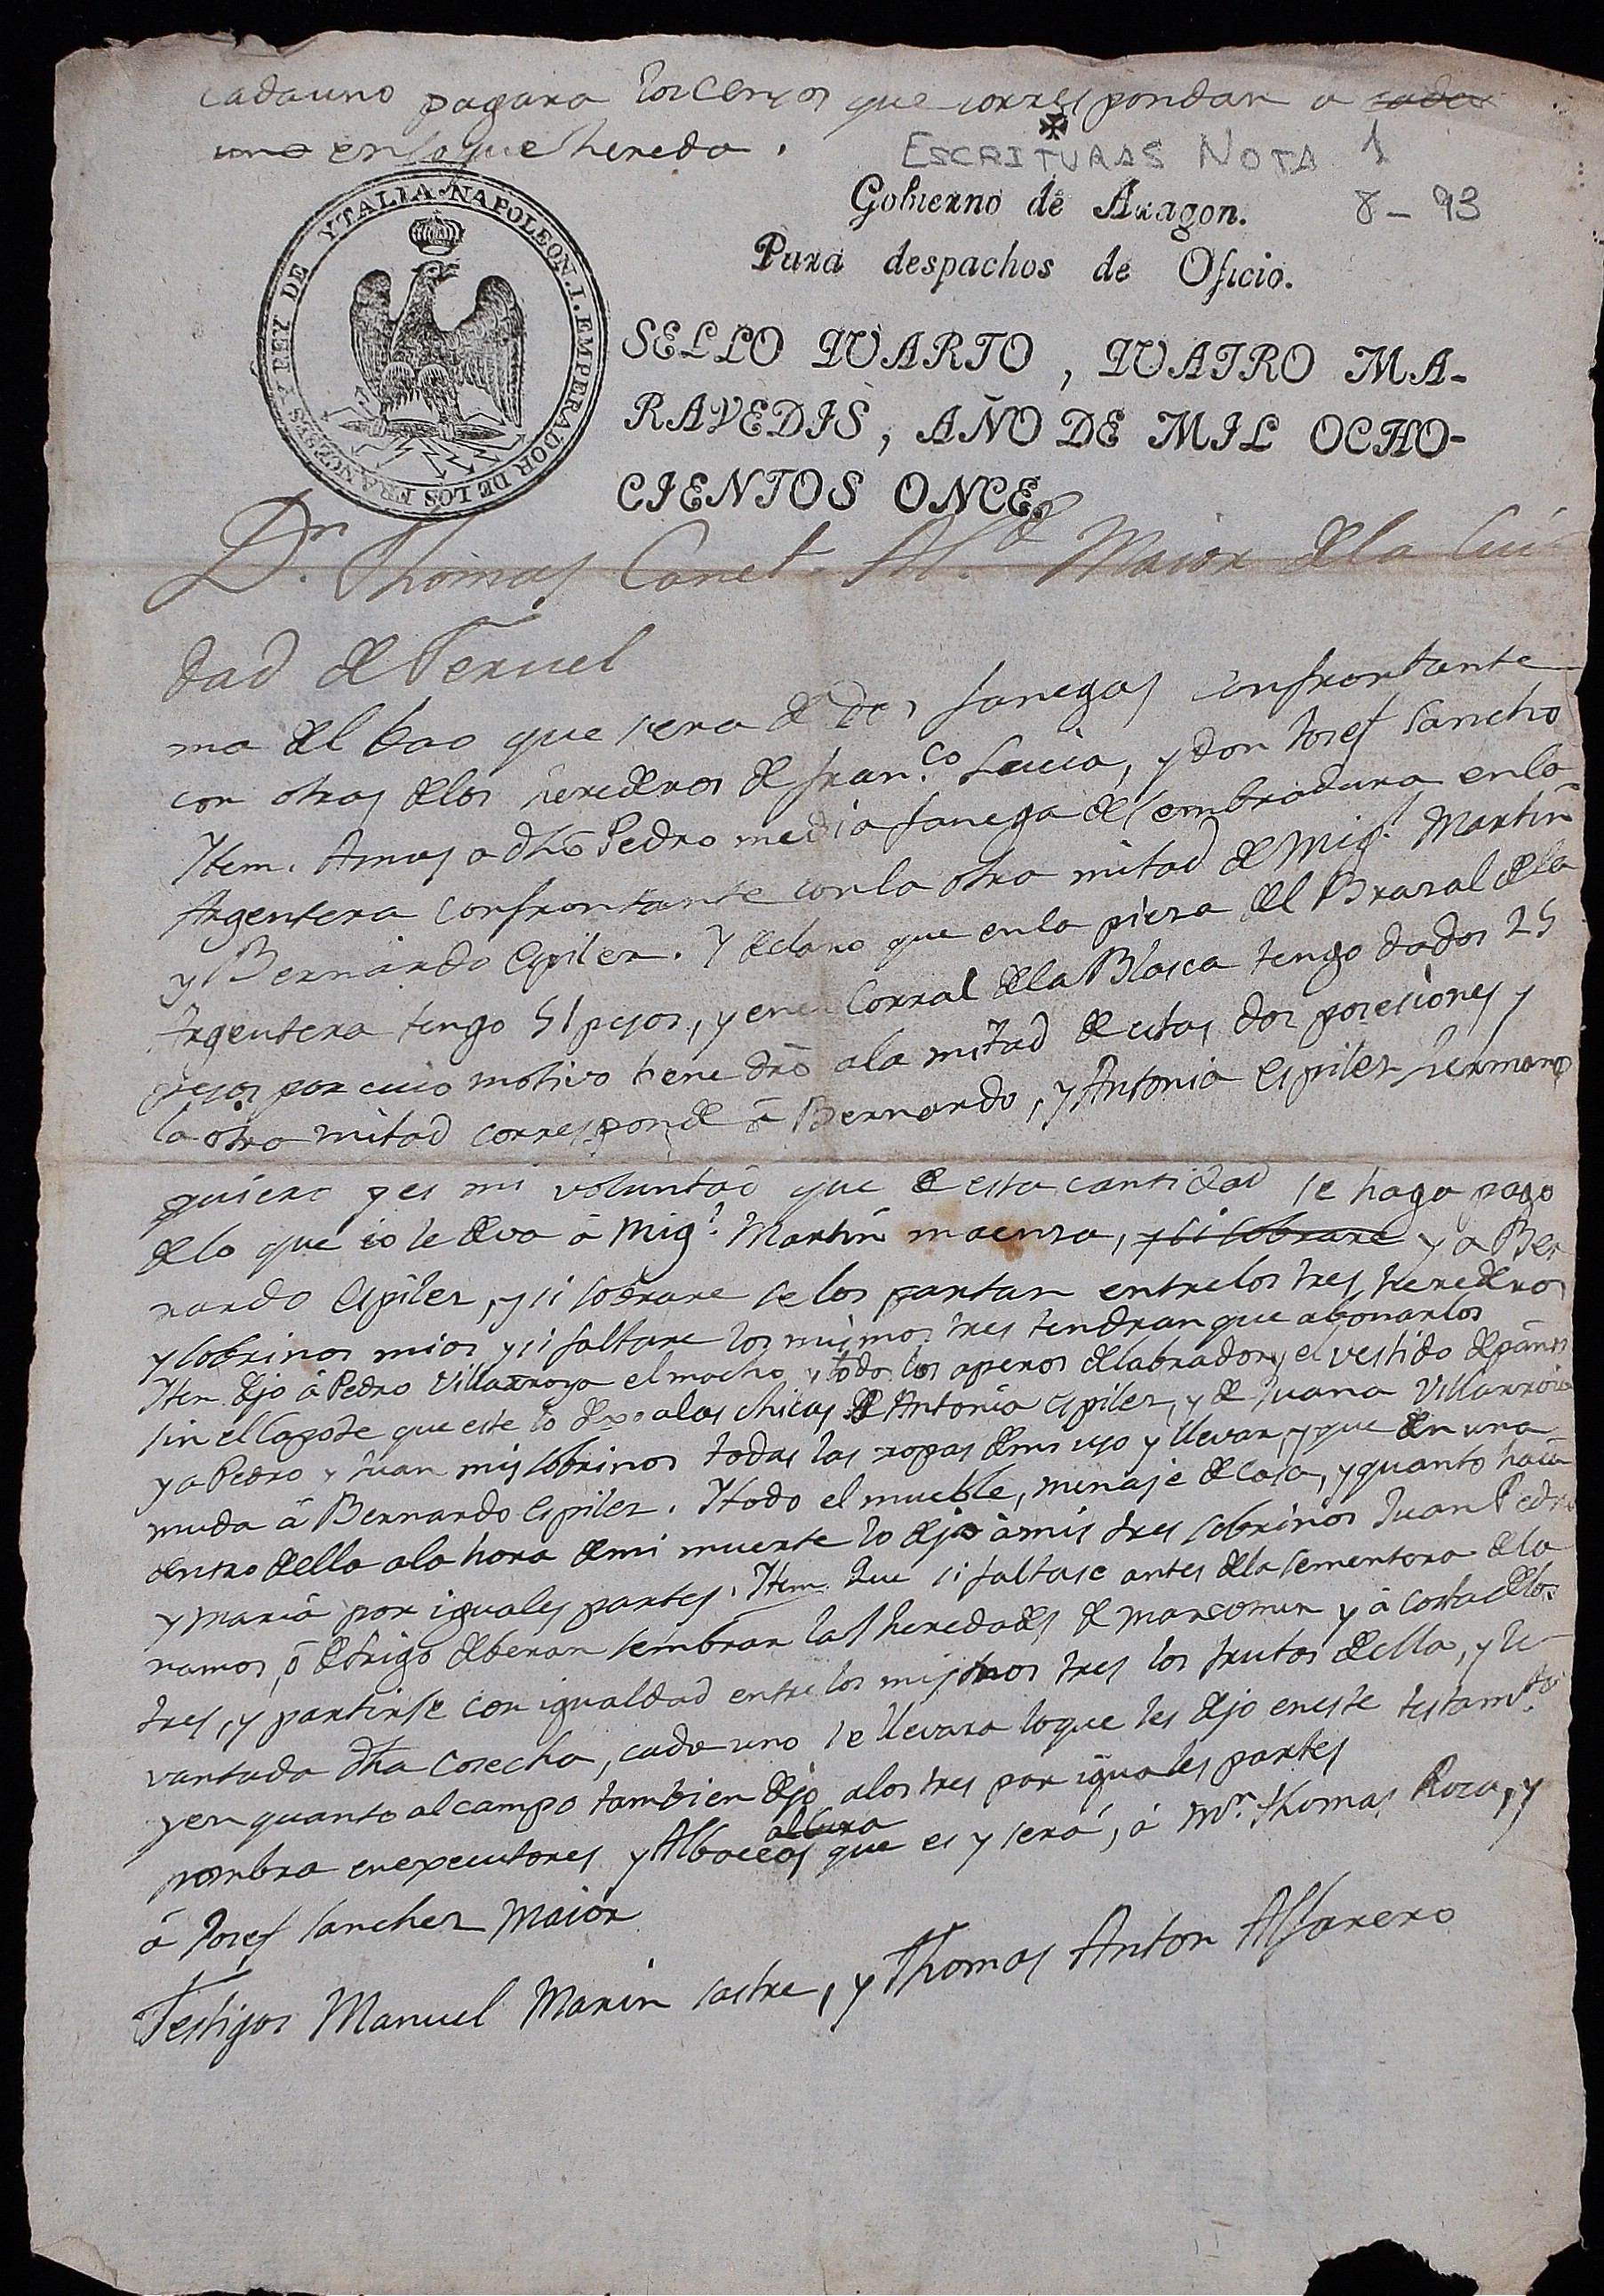 cadauno pagara los censos que correspondan a cada
uno en lo que hereda.
ESCRITURAS NOTA 1
8-93
NAPOLEON.I.EMPERADOR DE LOS FRANCESES Y REY DE YTALIA
Gobierno de Aragon.
Para despachos de Oficio.
SELLO QUARTO, QUATRO MA-
RAVEDIS, AÑO DE MIL OCHO-
CIENTOS ONCE.
Dn. Thomas Canet Ald. Maior de la Ciu
dad de Teruel
ma del bao que sera de dos fanegas confrontante
con otras delos herederos de Franco. Lucia, y don Josef Sancho
Ytem. Amas a dho Pedro media fanega de sembradura en la
Argentera confrontante con la otra mitad de Migl. Martin
y Bernardo Espilez. Y declaro que en la pieza del Brazal dela
Argentera tengo 51 pesos, y en el Corral dela Blasca tengo dados 25
pesos por cuio motivo tiene dro ala mitad de estas dos posesiones y
la otra mitad corresponde â Bernardo, y Antonia Espilez hermanos
quiero y es mi voluntad que de esta cantidad se haga pago
delo que io le deva â Migl. Martin maenza, y si sobrare y a Ber
nardo Espilez, y si sobrare se los partan entrelos tres herederos
y sobrinos mios y si faltare los mismos tres tendran que abonarlos
Ytem dejo â Pedro Villarroya el macho y todos los aperos de labrador y el vestido de paño
sin el Capote que este lo dexo alas chicas de Antonia Espilez, y de Juana Villarroia
y a Pedro y Juan mis sobrinos todas las ropas de mi uso y llevar, y que den una
muda â Bernardo Espilez. Ytodo el mueble, menaje de casa, y quanto haia
dentro della ala hora de mi muerte lo dejo â mis tres sobrinos Juan Pedro
y Maria por iguales partes. Ytem. Que si faltase antes dela sementera dela
ramos, ô de trigo deberan sembrar las heredades de mancomun y â costa delos
tres, y partirse con igualdad entre los mismos tres los frutos de ella, y le
vantada dha Cosecha, cada uno se llevara loque les dejo eneste testamto.
y en quanto al campo tambien dejo alos tres por iguales partes
nombra en executores y Albaceas al Cura que es y será, â Mn. Thomas Roza, y
â Josef Sanchez Maior
Testigos Manuel Marin sastre, y Thomas Anton Alfarero